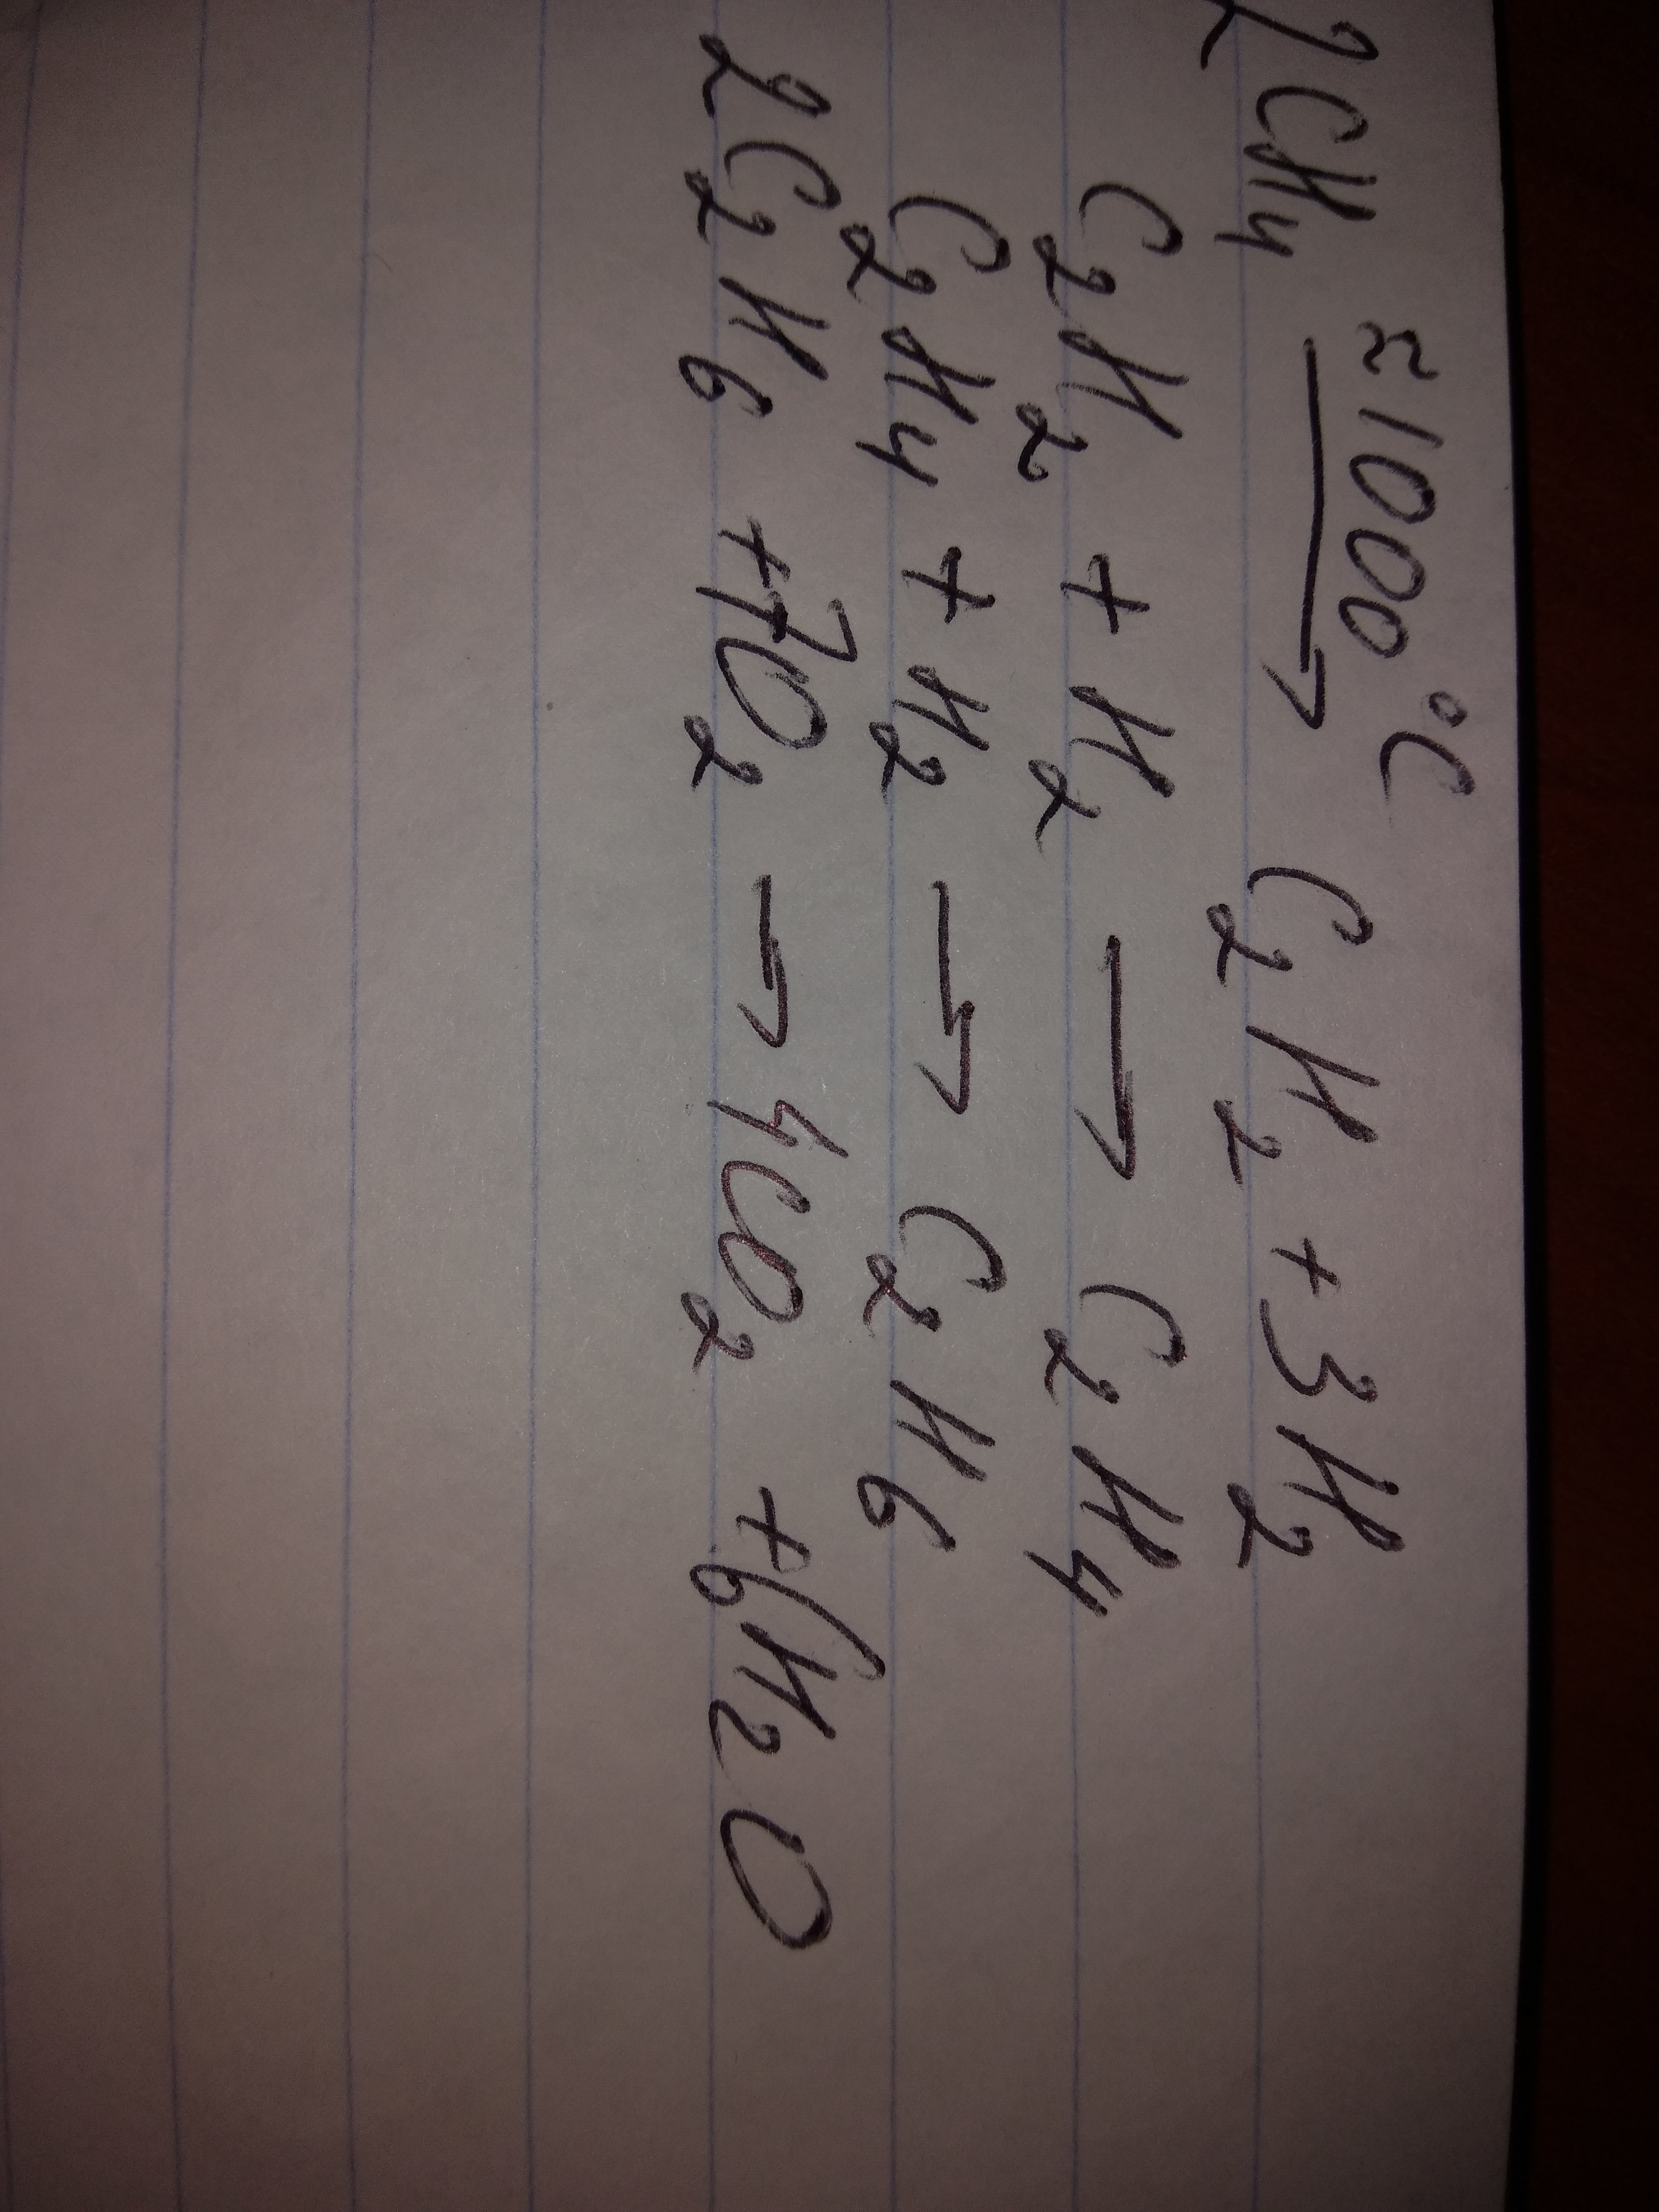 ≈1000°C
2CH₄ → C₂H₂ + 3H₂
C₂H₂ + H₂ → C₂H₄
C₂H₄ + H₂ → C₂H₆
2C₂H₆ + 7O₂ → 4CO₂ + 6H₂O